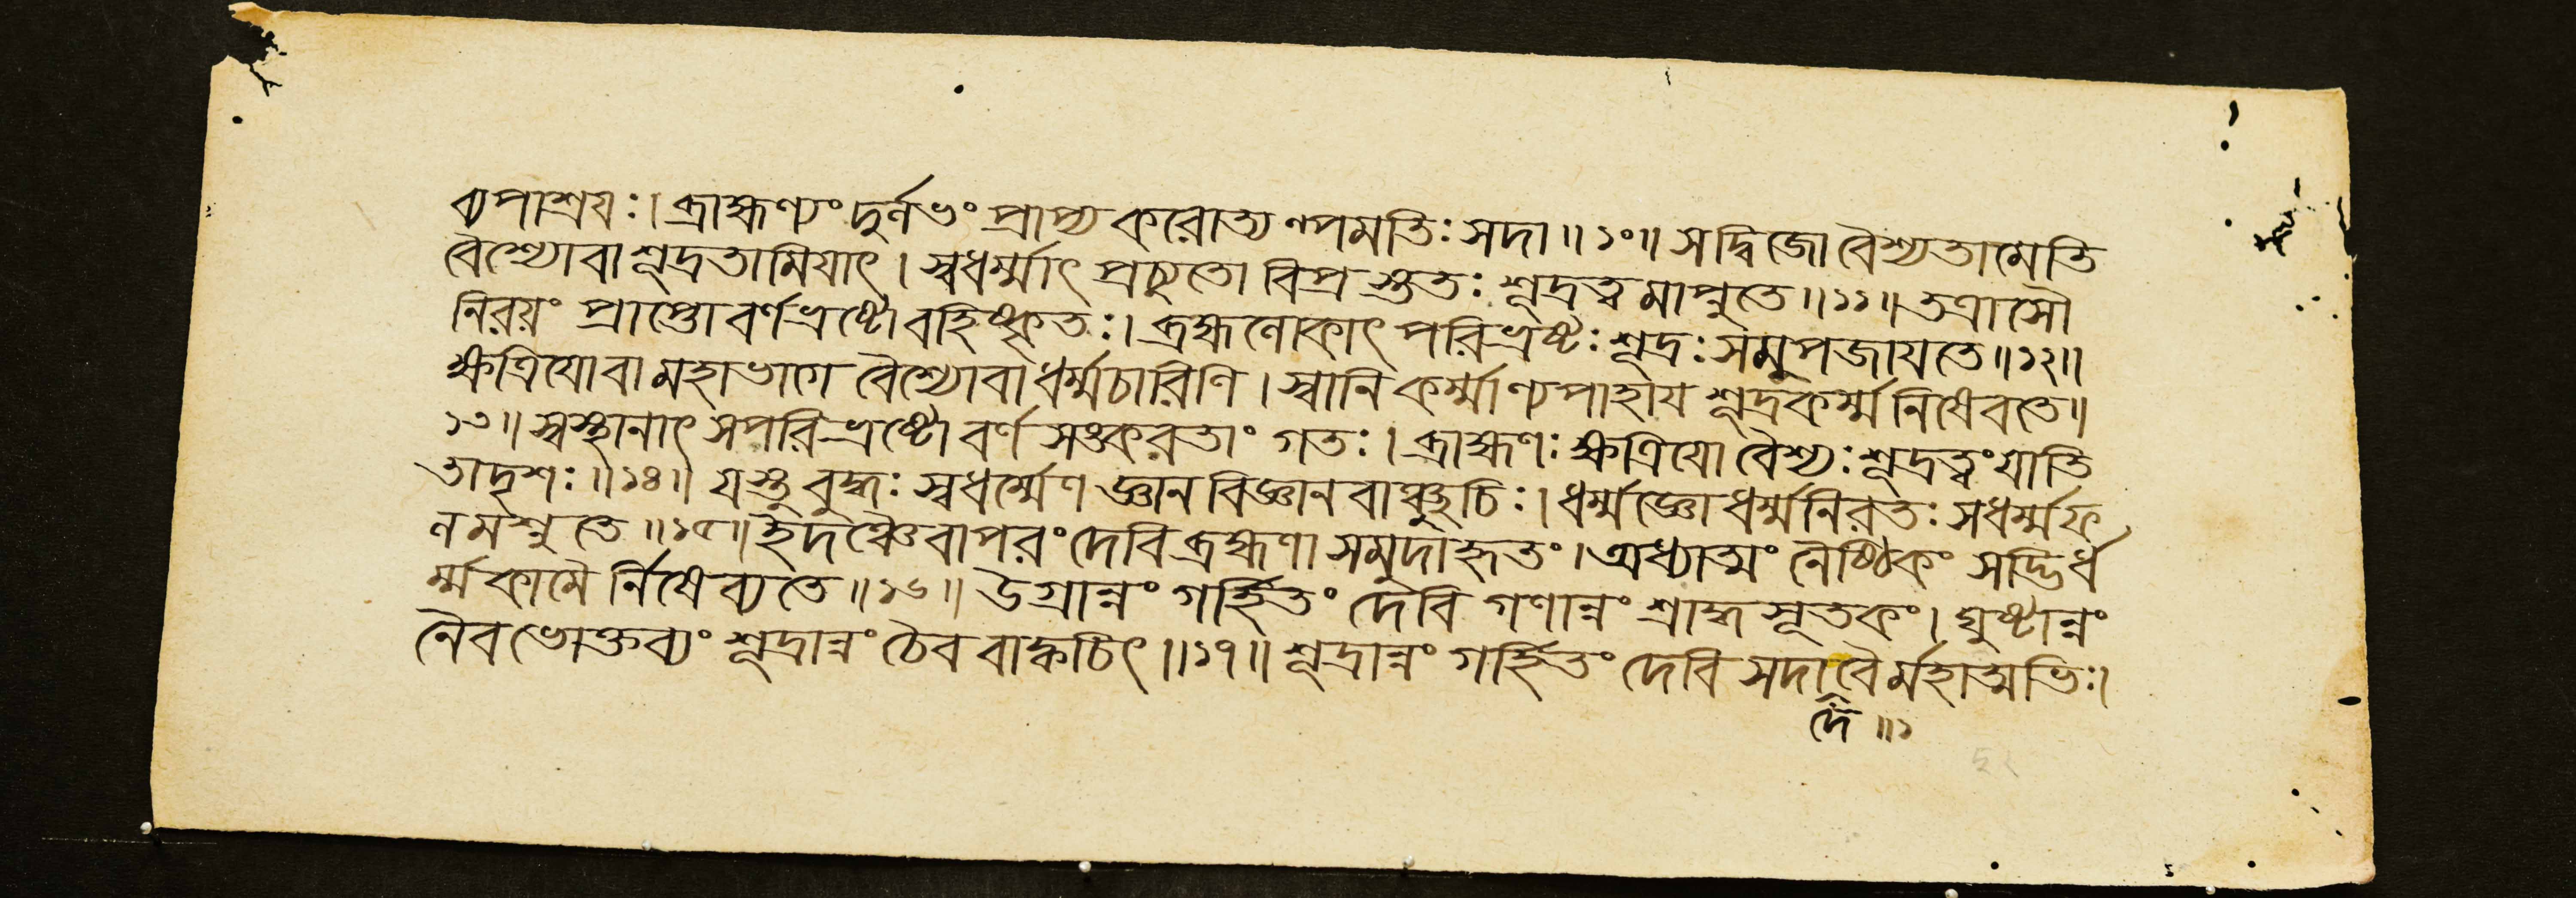 ব্যপাশ্রয়ঃ। ব্রাহ্মণ্যং দুর্লভং প্রাপ্য করোত্যল্পমতিঃ সদা॥ ১০॥ সদ্বিজো বৈশ্যতামেতি
বৈশ্যোবা শূদ্রতামিয়াৎ। স্বধর্ম্মাৎ প্রচ্যুতো বিপ্র স্ততঃ শূদ্রত্ব মাপ্নুতে॥ ১১॥ তত্রাসৌ
নিরয়ং প্রাপ্তো বর্ণভ্রষ্টো বহিষ্কৃতঃ। ব্রহ্মলোকাৎ পরিভ্রষ্টঃ শূদ্রঃ সমুপজায়তে॥ ১২॥
ক্ষত্রিয়োবা মহাভাগে বৈশ্যোবা ধর্ম্মচারিণি। স্বানি কর্ম্মাণ্যপাহায় শূদ্রকর্ম্ম নিষেবতে॥
১৩॥ স্বস্থানাৎ সপরিভ্রষ্টো বর্ণ সঙ্করতাং গতঃ। ব্রাহ্মণঃ ক্ষত্রিয়ো বৈশ্যঃ শূদ্রত্বং যাতি
তাদৃশঃ॥ ১৪॥ যস্তু বুদ্ধঃ স্বধর্ম্মেণ জ্ঞান বিজ্ঞান বাঞ্চুচিঃ। ধর্ম্মজ্ঞো ধর্ম্মনিরতঃ সধর্ম্মফ
লমশ্নুতে॥ ১৫॥ ইদঞ্চৈবাপরং দেবি ব্রহ্মণা সমুদাহৃতং। অধ্যাত্মং নৈষ্ঠিকং সদ্ভির্ধ
র্ম্মকামৈ র্নিষেব্যতে॥ ১৬॥ উগ্রান্নং গর্হিতং দেবি গণান্নং শ্রাদ্ধ সূতকং। ঘুষ্টান্নং
নৈব ভোক্তব্যং শূদ্রান্নং চৈব বাক্বচিৎ॥ ১৭॥ শূদ্রান্নং গর্হিতং দেবি সদা বৈর্মহাত্মভিঃ।
দে॥ ১